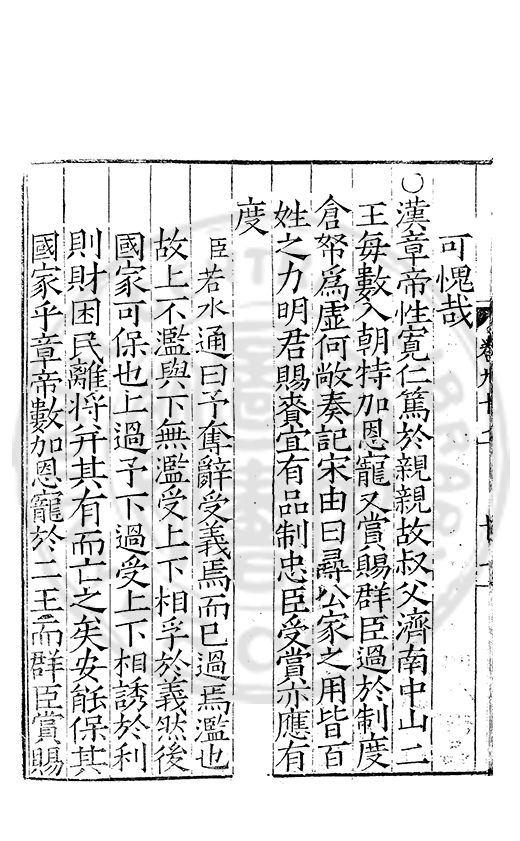 可愧哉
○漢章帝性寛仁篤於親親故叔父濟南中山二
王每數入朝特加恩寵又賞賜群臣過於制度
倉帑爲虛何敞奏記宋由曰尋公家之用皆百
姓之力明君賜賚宜有品制忠臣受賞亦應有
度
臣若水通曰予奪辭受義焉而已過焉濫也
故上不濫與下無濫受上下相孚於義然後
國家可保也上過予下過受上下相誘於利
則財困民離將并其有而亡之矣安能保其
國家乎章帝數加恩寵於二王而群臣賞賜